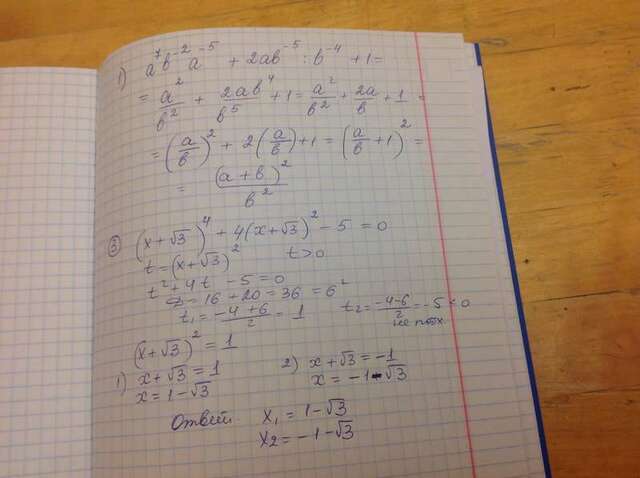 1) a⁷b⁻²a⁻⁵ + 2ab⁻⁵ : b⁻⁴ + 1 =
= a²/b² + 2ab⁴/b⁵ + 1 = a²/b² + 2a/b + 1 =
= (a/b)² + 2(a/b) + 1 = (a/b + 1)² =
= (a+b)²/b²
③ (x+√3)⁴ + 4(x+√3)² - 5 = 0
t = (x+√3)² t>0
t² + 4t - 5 = 0
D = 16 + 20 = 36 = 6²
t₁ = (-4+6)/2 = 1 t₂ = (-4-6)/2 = -5 < 0
не подх.
(x+√3)² = 1
1) x+√3 = 1 2) x+√3 = -1
x = 1-√3 x = -1-√3
Ответ: x₁ = 1-√3
x₂ = -1-√3